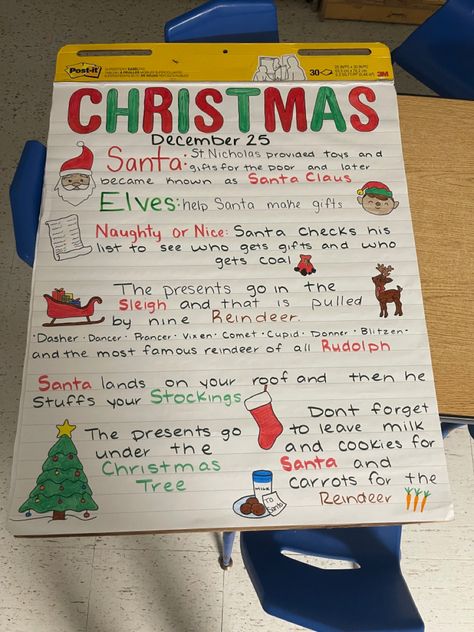 Post-it
30
3M
CHRISTMAS
December 25
Santa: St Nicholas provided toys and
gifts for the poor and later
became known as Santa Claus
Elves: help Santa make gifts
Naughty or Nice: Santa checks his
list to see who gets gifts and who
gets coal
The presents go in the
Sleigh and that is pulled
by nine Reindeer.
· Dasher · Dancer · Prancer · Vixen · Comet · Cupid · Donner · Blitzen ·
and the most famous reindeer of all Rudolph
Santa lands on your roof and then he
stuffs your Stockings
The presents go
under the
Christmas
Tree
Dont forget
to leave milk
and cookies for
Santa and
carrots for the
Reindeer
MILK
TO
Santa